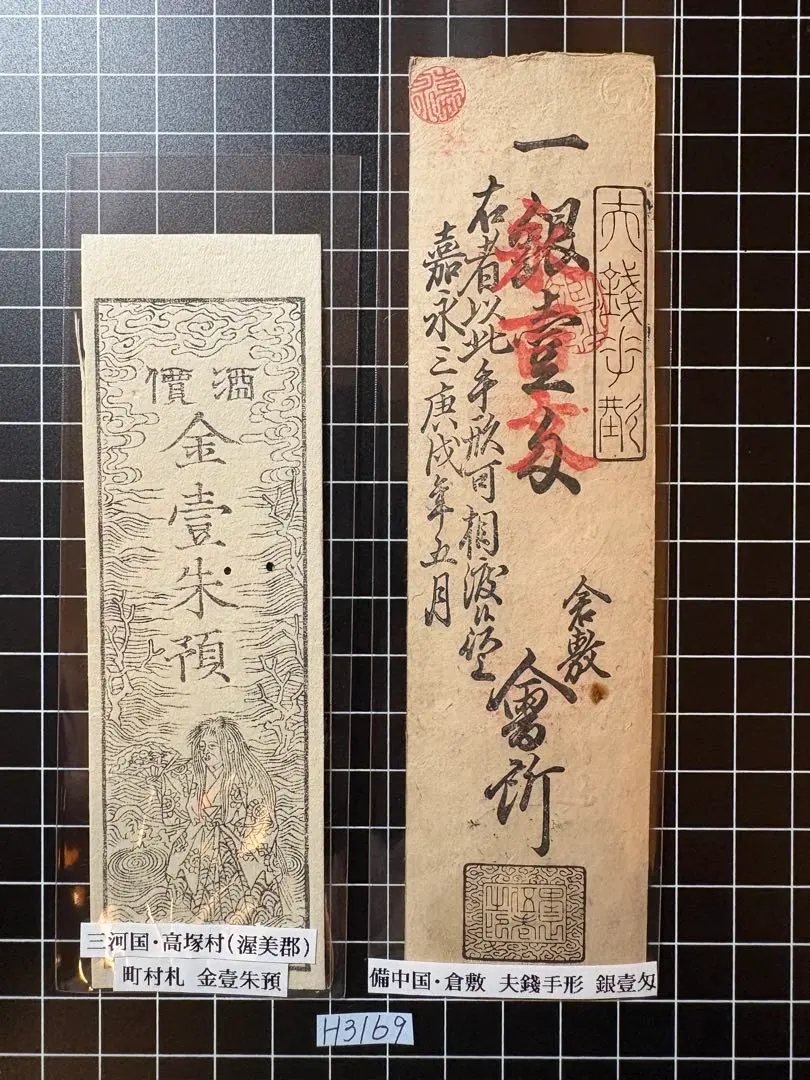 酒價
金壹朱預
三河国・高塚村(渥美郡)
町村札 金壹朱預
夫錢手形
一 銀壹匁
銀壹匁
倉敷
會所
右者以此手形可相渡候
嘉永三庚戌年五月
備中国・倉敷 夫錢手形 銀壹匁
H3169